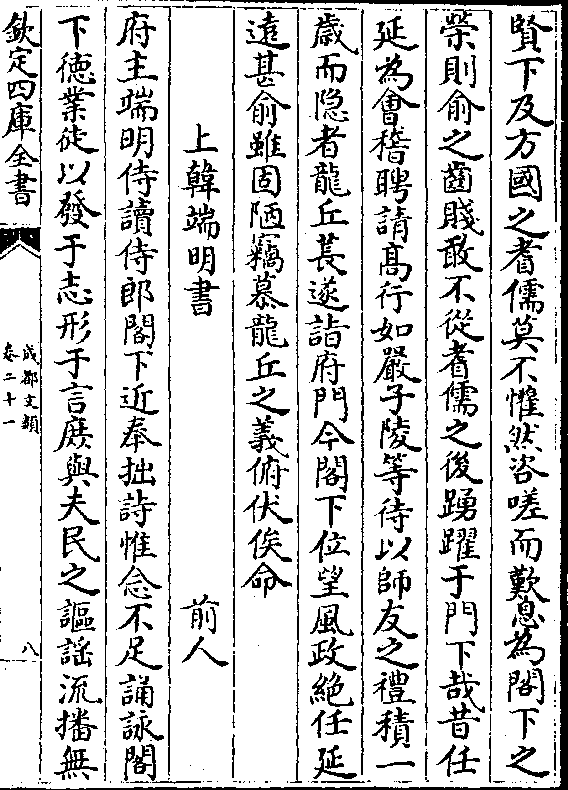 賢下及方國之耆儒莫不懽然咨嗟而歎息為閤下之
榮則俞之齒賤敢不從耆儒之後踴躍于門下哉昔任
延為會稽聘請髙行如嚴子陵等待以師友之禮積一
歳而隐者龍丘萇遂詣府門今閤下位望風政絶任延
逺甚俞雖固陋竊慕龍丘之義俯伏俟命
上韓端明書 前人
府主端明侍讀侍郎閤下近奉拙詩惟念不足誦詠閤
下徳業徒以發于志形于言庻與夫民之謳謡流播無
欽定四庫全書
成都文類
卷二十一
八